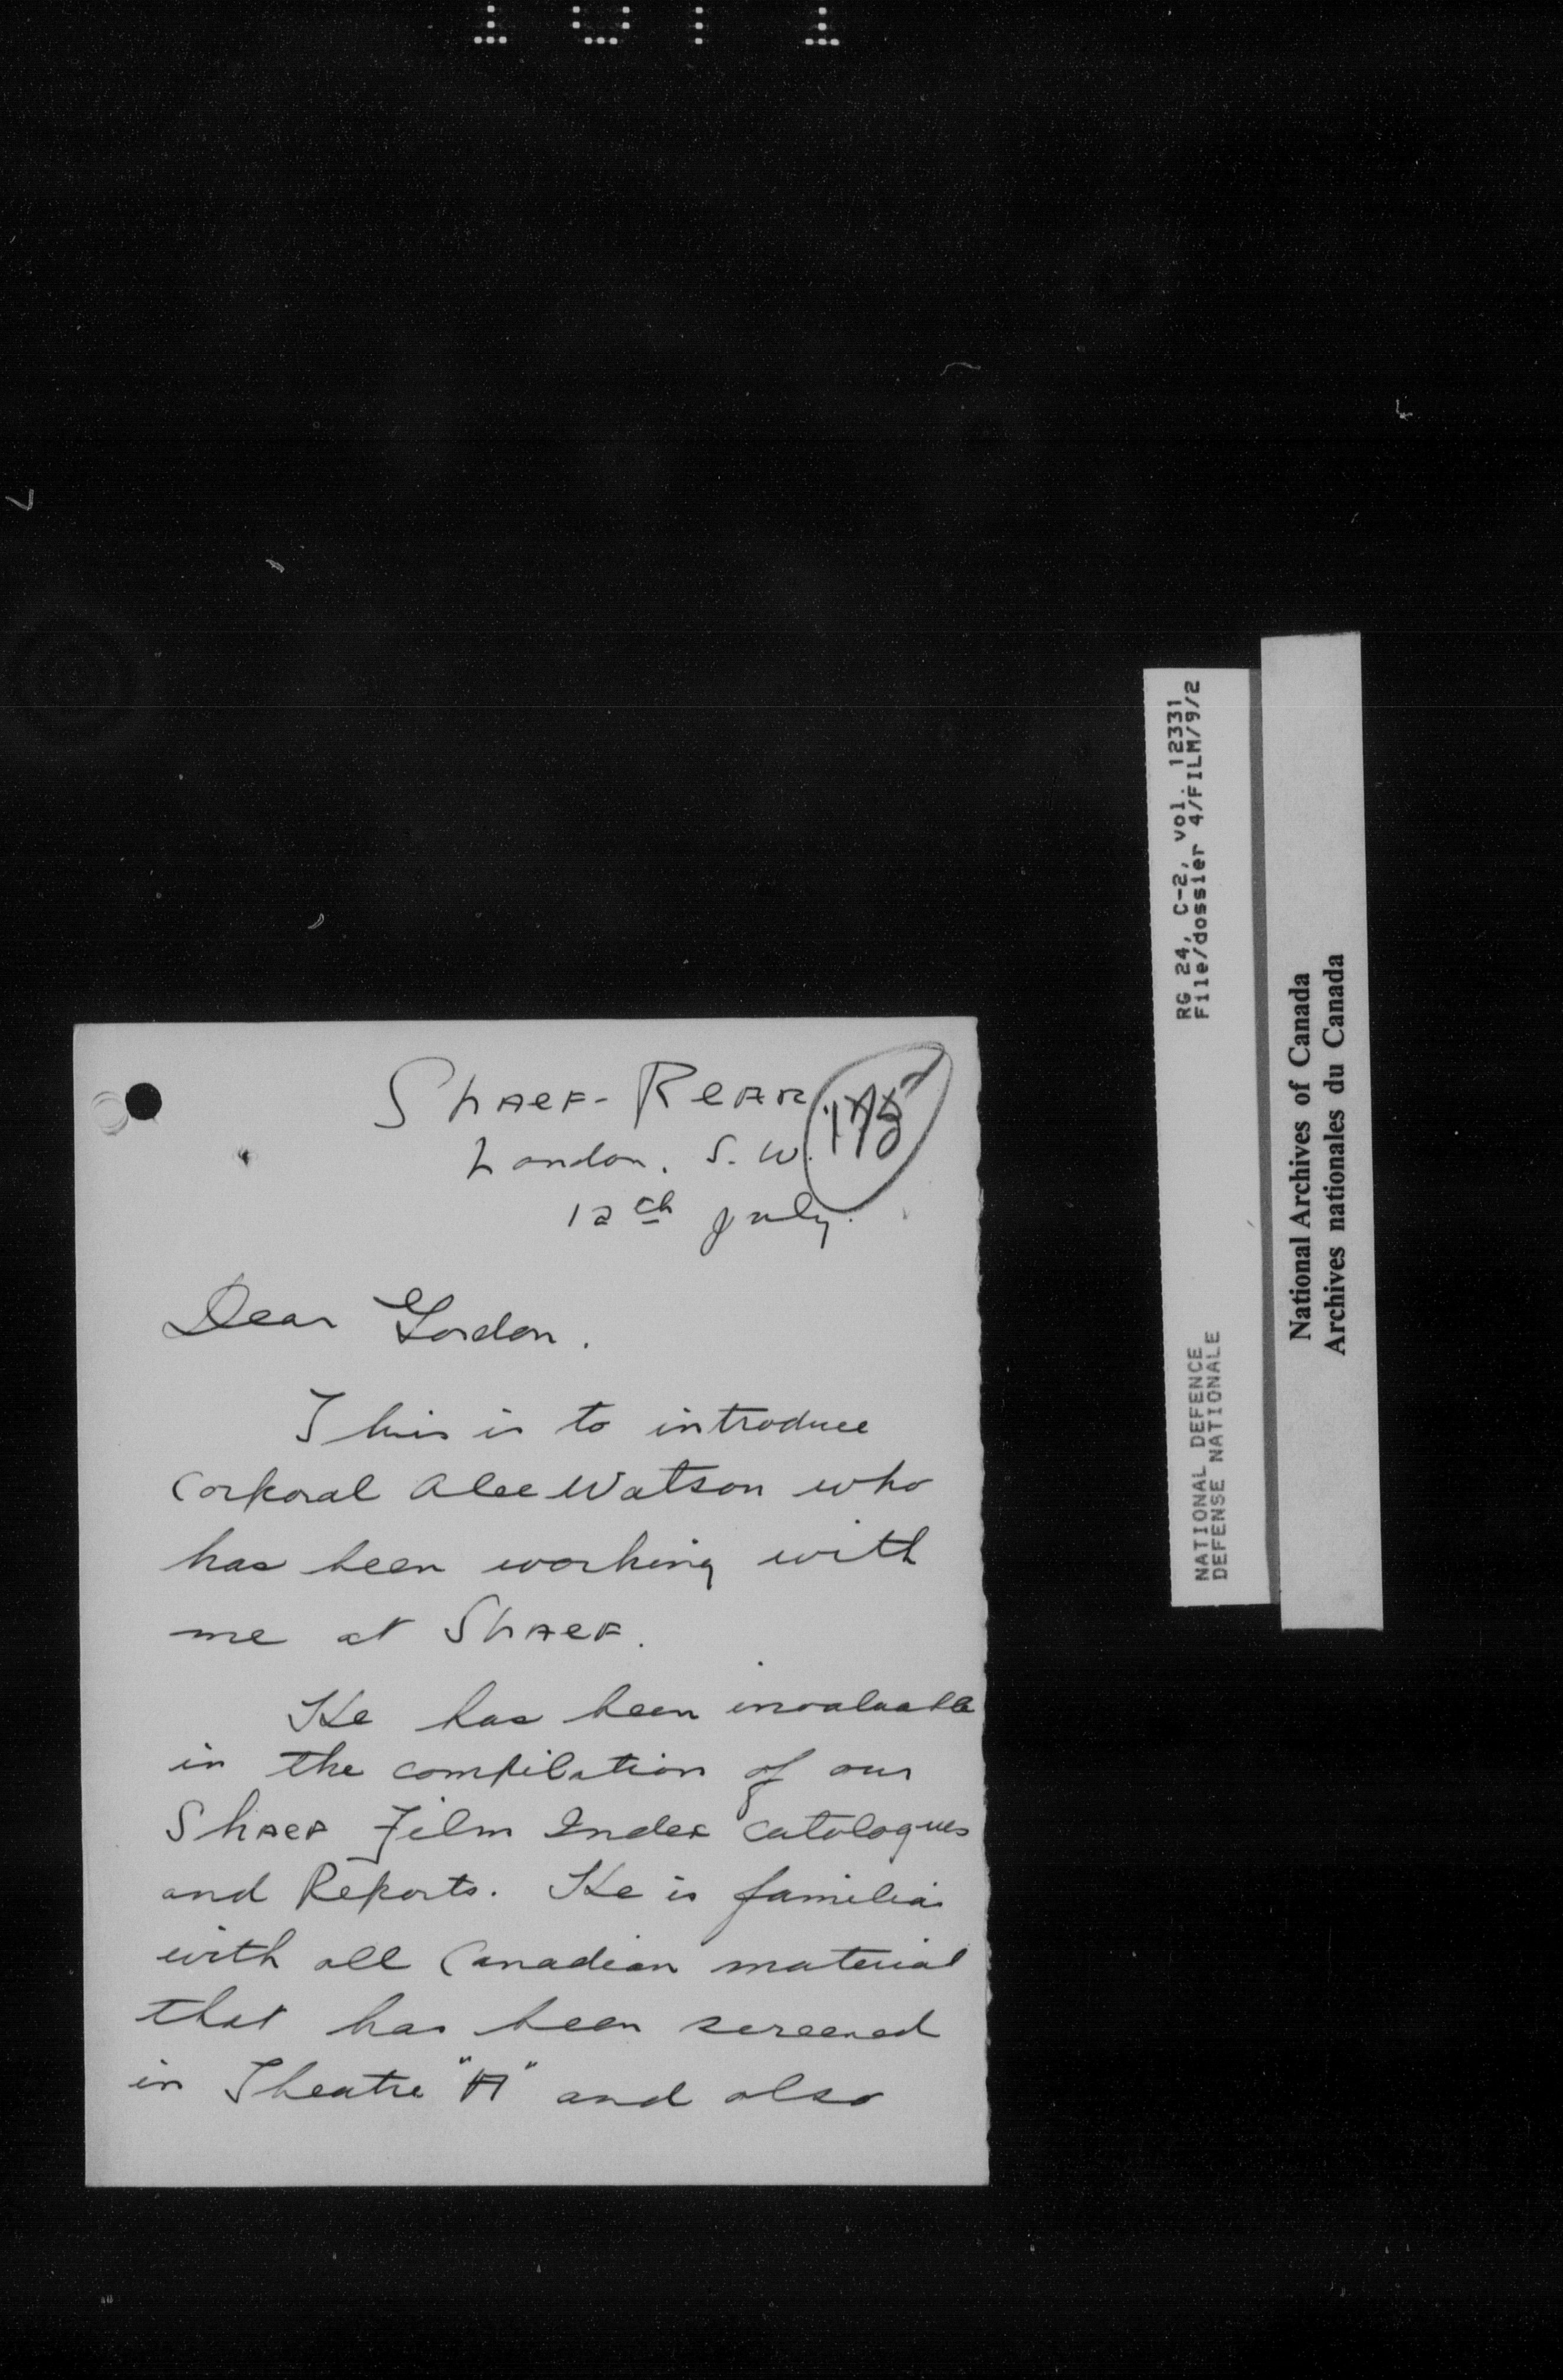 Shaef - Rear
London. S.W.
12th July.
Dear Gordon.
This is to introduce
Corporal Alec Watson who
has been working with
me at Shaef.
He has been invaluable
in the compilation of our
Shaef Film Index catalogues
and Reports. He is familiar
with all Canadian material
that has been screened
in Theatre "A" and also
RG 24, C-2, vol. 12331
File/dossier 4/FILM/9/2
NATIONAL DEFENCE
DEFENSE NATIONALE
National Archives of Canada
Archives nationales du Canada